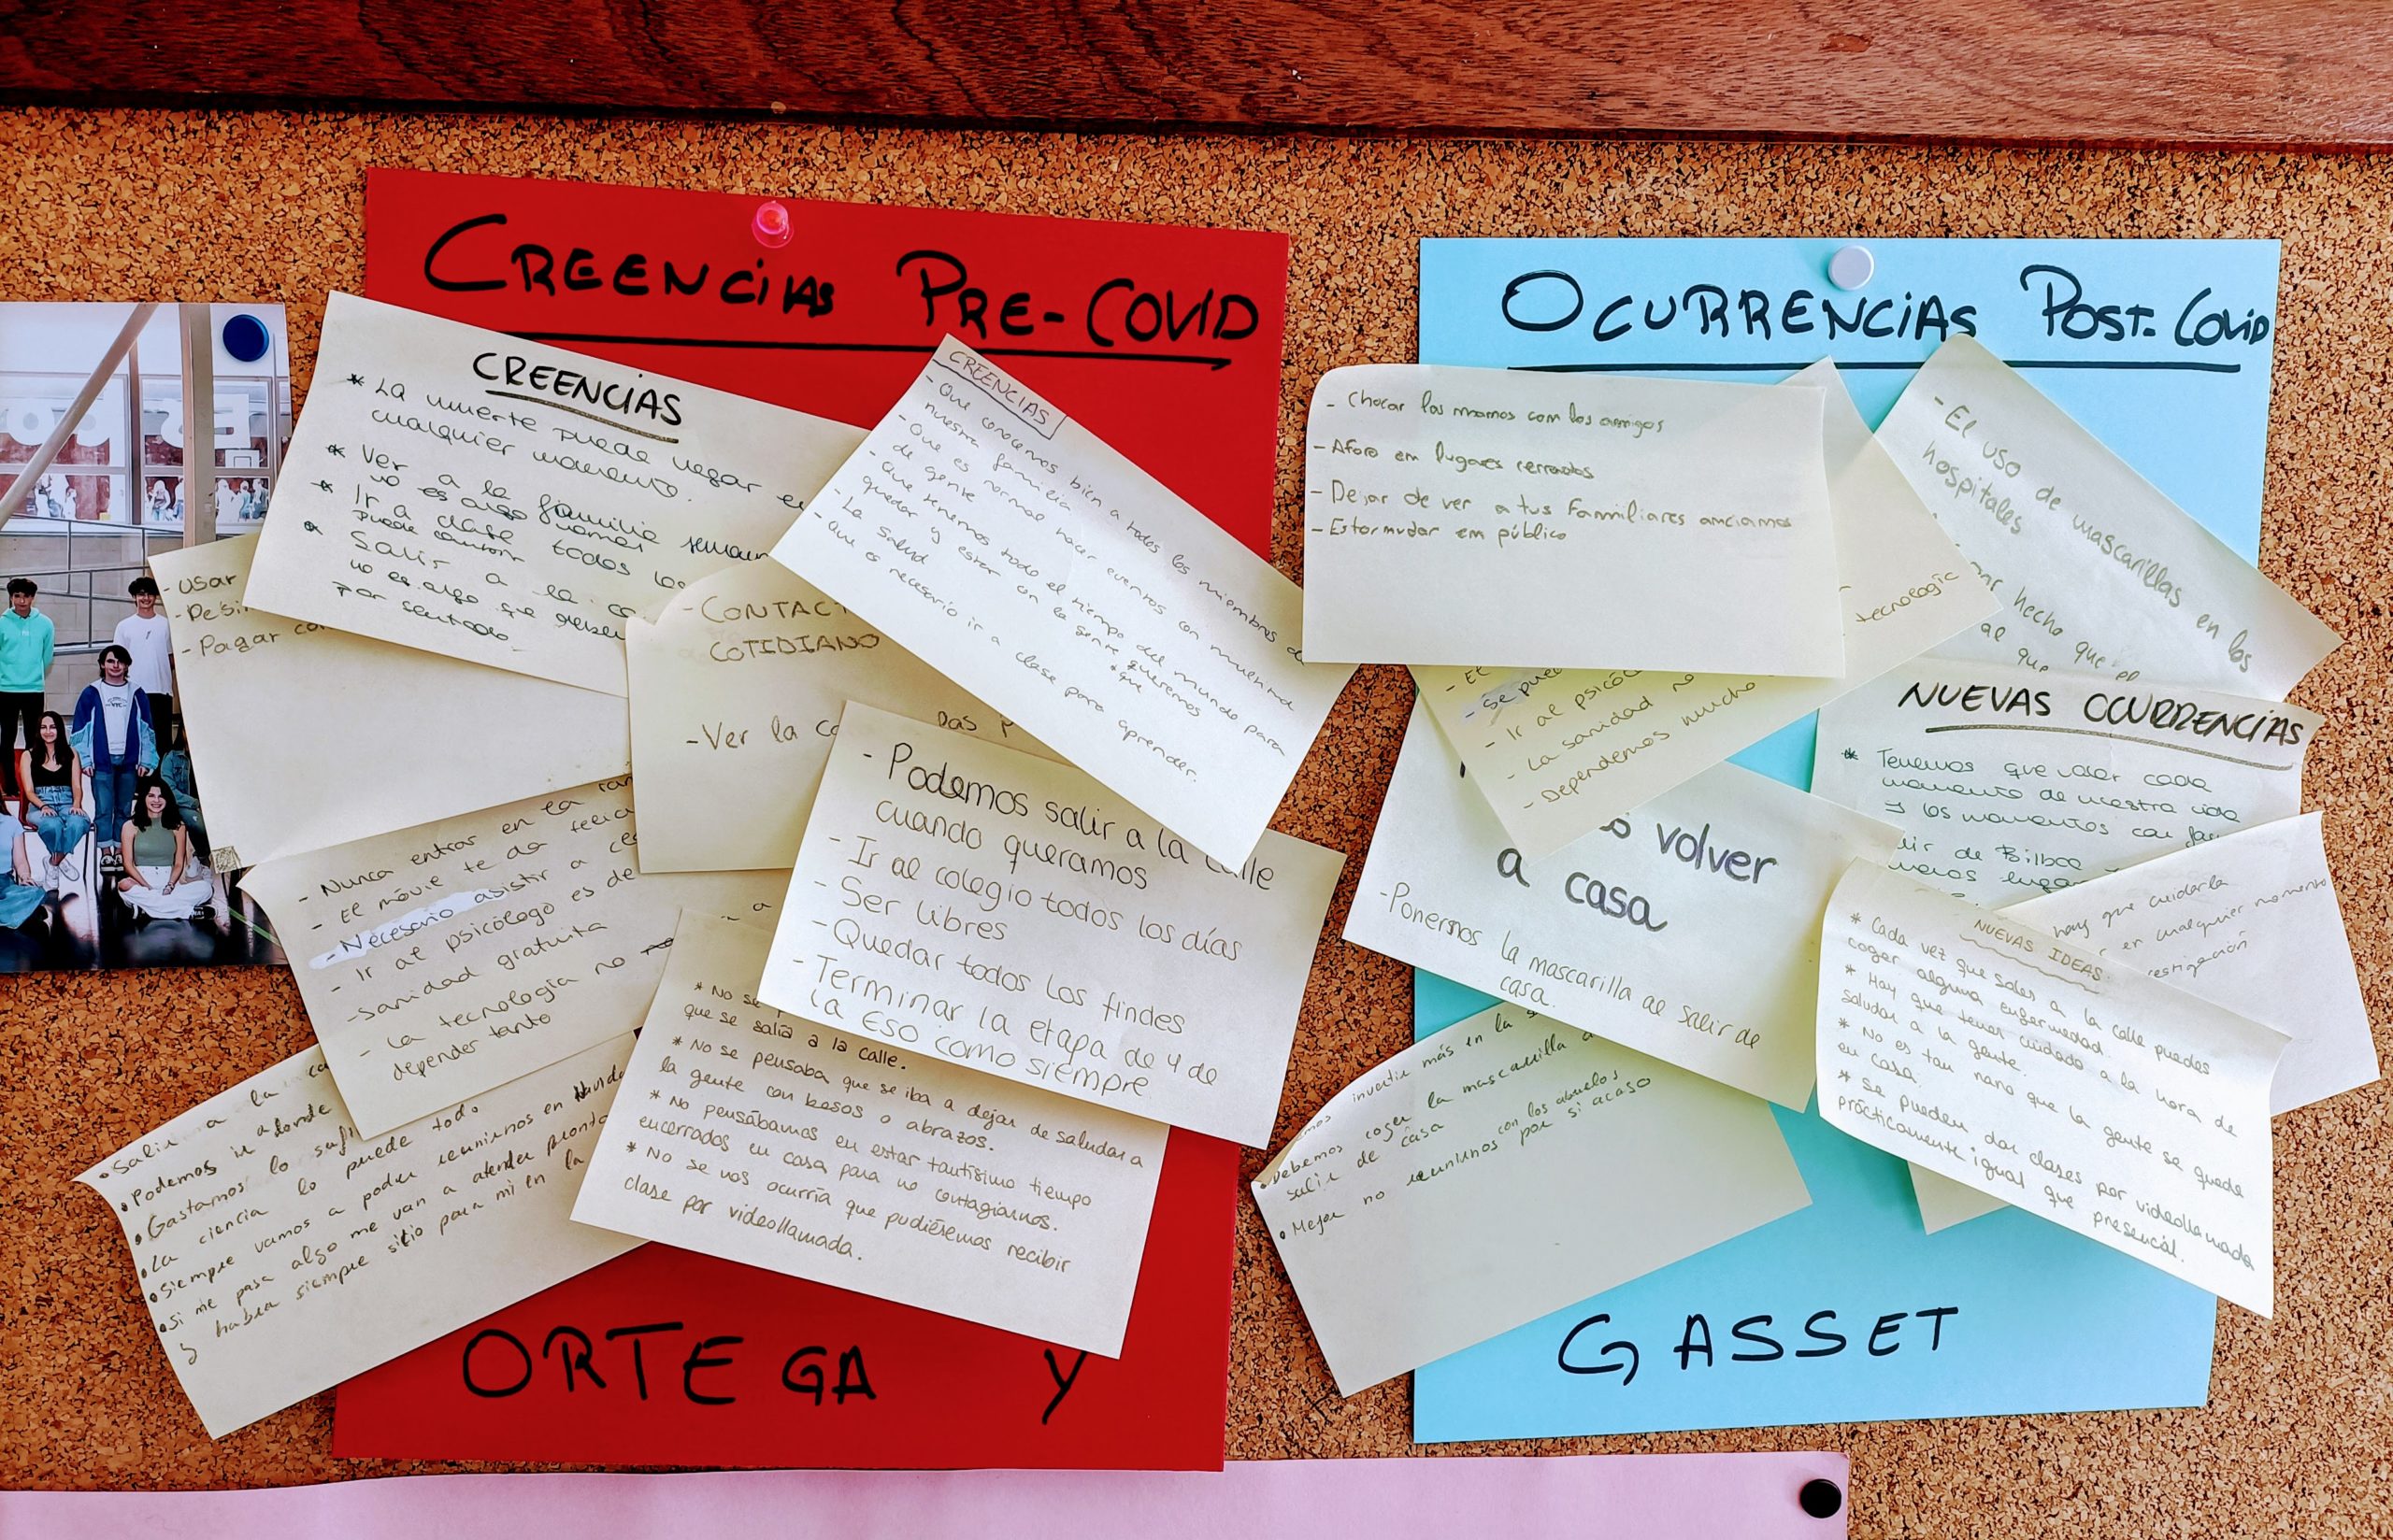 CREENCIAS PRE-COVID
CREENCIAS
* LA muerte puede llegar en
cualquier momento.
* Ver a la familia
no es algo
* Ir a clase todos los
puede
* Salir a la
no es algo que
por sentado.
- usar
- Pagar
- CONTACT
COTIDIANO
- Ver la
CREENCIAS
- Que conocemos bien a todos los miembros de
nuestra familia
- Que es normal hacer eventos con muchísima
de gente
- Que tenemos todo el tiempo del mundo para
quedar y estar con la gente que queremos
- La salud
- Que es necesario ir a clase para aprender.
- Podemos salir a la calle
cuando queramos
- Ir al colegio todos los días
- Ser libres
- Quedar todos los findes
- Terminar la etapa de 4 de
la ESO como siempre
- Nunca entrar en
- El móvil te da
- Necesario asistir a
- Ir al psicólogo es de
- Sanidad gratuita
- La tecnología no
depender tanto
* No se
que se salía a la calle.
* No se pensaba que se iba a dejar de saludar a
la gente con besos o abrazos.
* No pensábamos en estar tantísimo tiempo
encerrados en casa para no contagiarnos.
* No se nos ocurría que pudiésemos recibir
clase por videollamada.
• Salir a la
• Podemos ir a donde
• Gastamos lo
• La ciencia lo puede todo
• Siempre vamos a poder reunirnos en
• Si me pasa algo me van a atender pronto
y habrá siempre sitio para mí en la
ORTEGA Y
OCURRENCIAS POST-COVID
- Chocar las manos con los amigos
- Aforo en lugares cerrados
- Dejar de ver a tus familiares ancianos
- Estornudar en público
- El uso de mascarillas en los
hospitales
hecho que
al que
tecnologíc
- El
- Se pued
- Ir al psicólo
- La sanidad no
- Dependemos mucho
NUEVAS OCURRENCIAS
* Tenemos que valer cada
momento de nuestra vida
y los momentos con
de Bilbao
volver
a casa
- Ponernos la mascarilla al salir de
casa.
hay que cuidarla
en cualquier momento
NUEVAS IDEAS:
* Cada vez que sales a la calle puedes
coger alguna enfermedad.
* Hay que tener cuidado a la hora de
saludar a la gente.
* No es tan raro que la gente se quede
en casa.
* Se pueden dar clases por videollamada
prácticamente igual que presencial.
invertir más en la
• Debemos coger la mascarilla
salir de casa
• Mejor no reunirnos con los abuelos
por si acaso
GASSET